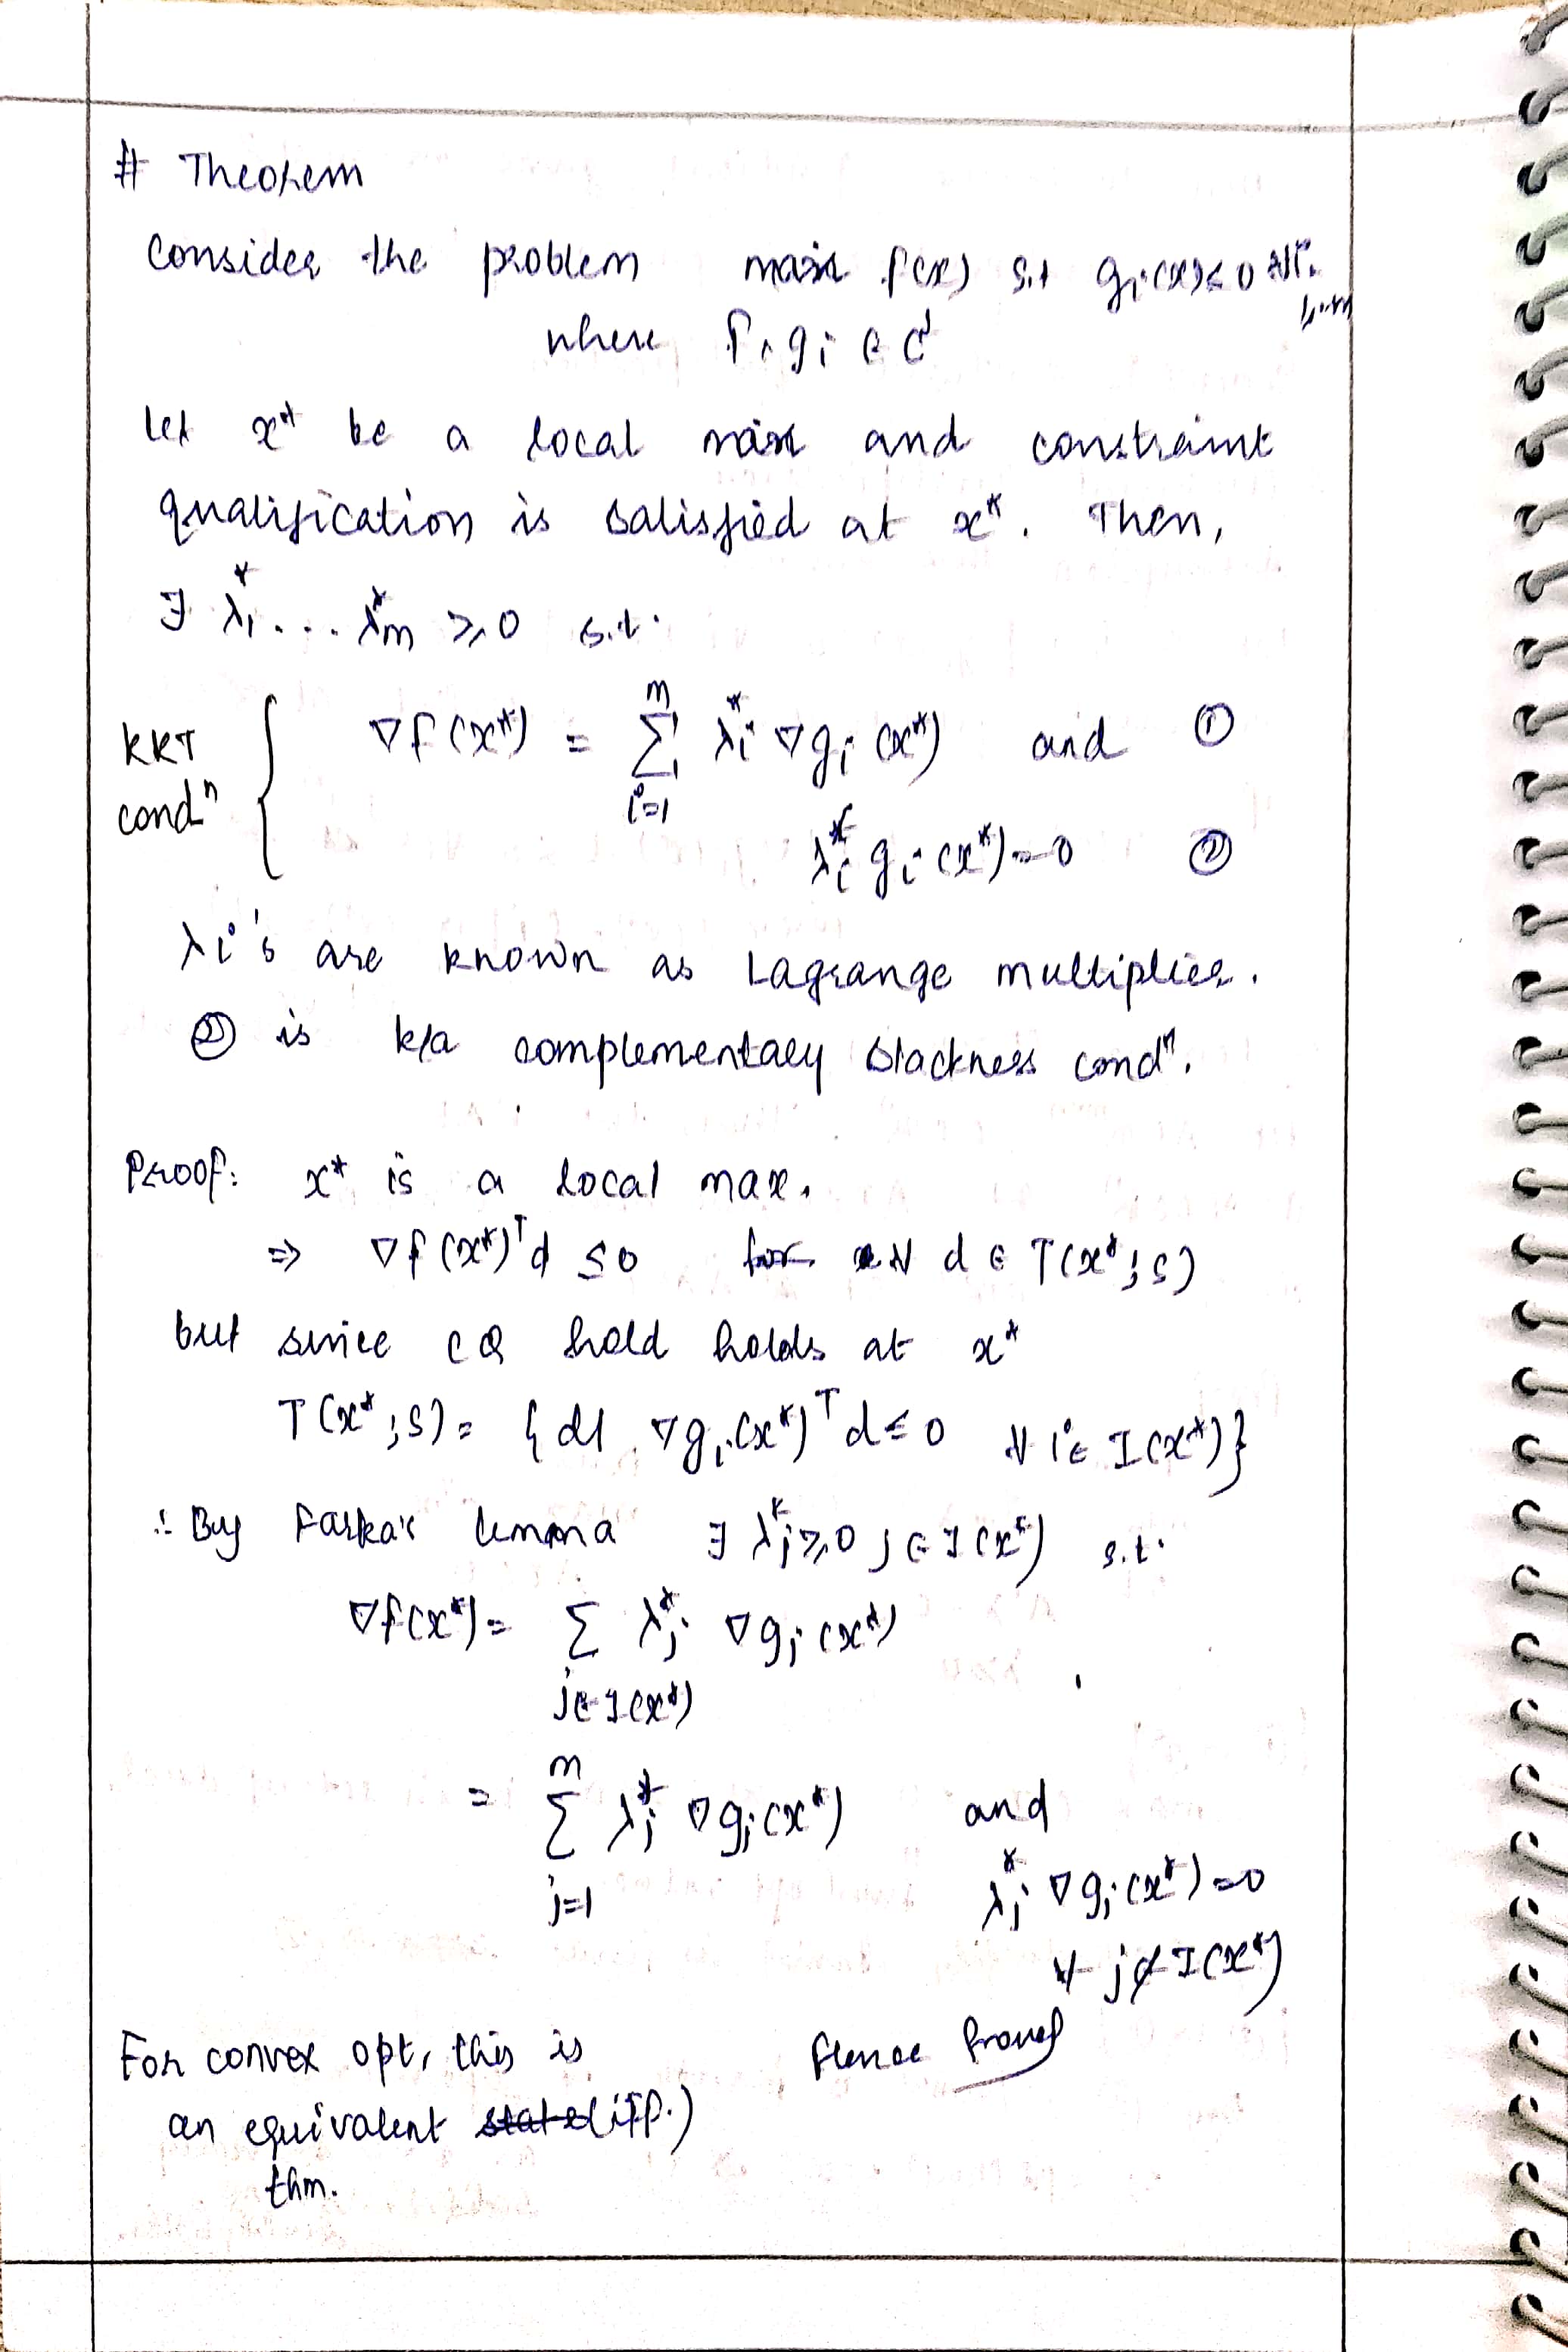 # Theorem
Consider the problem max f(x) s.t gᵢ(x)≤0 ∀ i=1,..m
where f, gᵢ ∈ C¹
Let x* be a local max and constraint
qualification is satisfied at x*. Then,
∃ λ₁* ... λₘ* ≥ 0 s.t.
KKT condⁿ { ∇f(x*) = Σᵢ₌₁ᵐ λᵢ* ∇gᵢ(x*) and ①
λᵢ* gᵢ(x*) = 0 ②
λi's are known as Lagrange multiplier.
② is k/a complementary slackness condⁿ.
Proof: x* is a local max.
⇒ ∇f(x*)ᵀd ≤ 0 for ∀ d ∈ T(x*; S)
but since CQ hold holds at x*
T(x*; S) = {d | ∇gᵢ(x*)ᵀd ≤ 0 ∀ i ∈ I(x*)}
∴ By Farka's lemma ∃ λⱼ* ≥ 0 j ∈ I(x*) s.t.
∇f(x*) = Σ λⱼ* ∇gⱼ(x*)
j ∈ I(x*)
= Σⱼ₌₁ᵐ λⱼ* ∇gⱼ(x*) and
λⱼ* ∇gⱼ(x*) = 0
∀ j ∉ I(x*)
Hence Proved
For convex opt, this is
an equivalent (iff.)
thm.